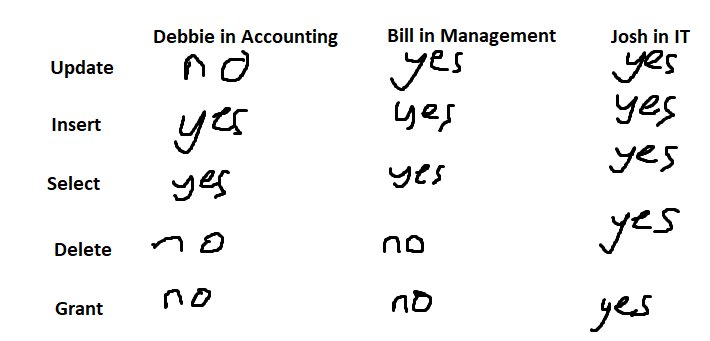 Debbie in Accounting Bill in Management Josh in IT
Update no yes yes
Insert yes yes yes
Select yes yes yes
Delete no no yes
Grant no no yes